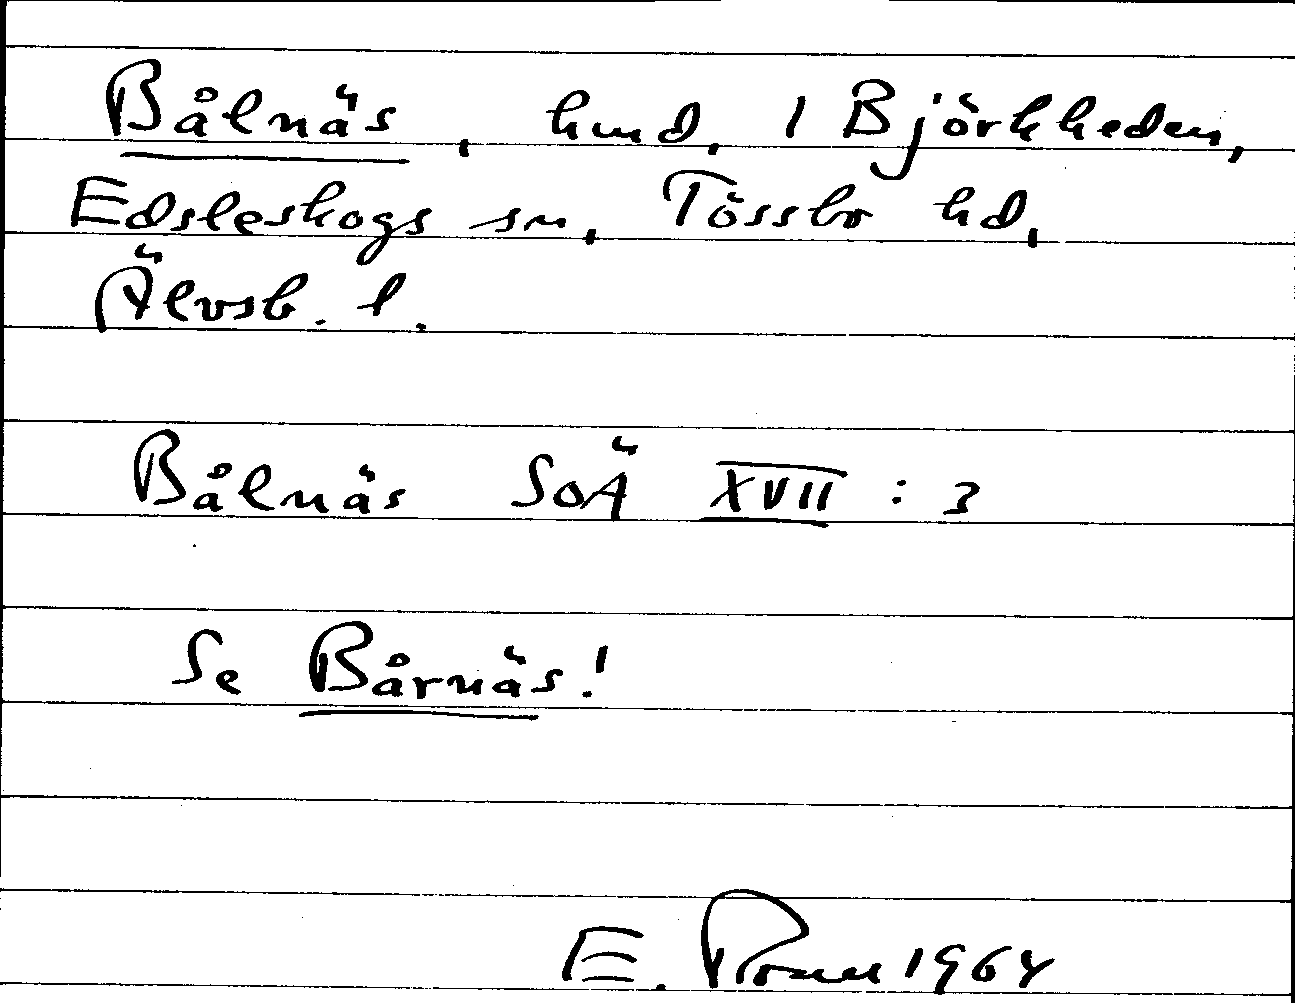 Bålnäs, hmd, 1 Björkheden,
Edsleskogs sn, Tössbo hd,
Älvsb. l.
Bålnäs SOÄ XVII : 3
Se Bårnäs!
E. 1964